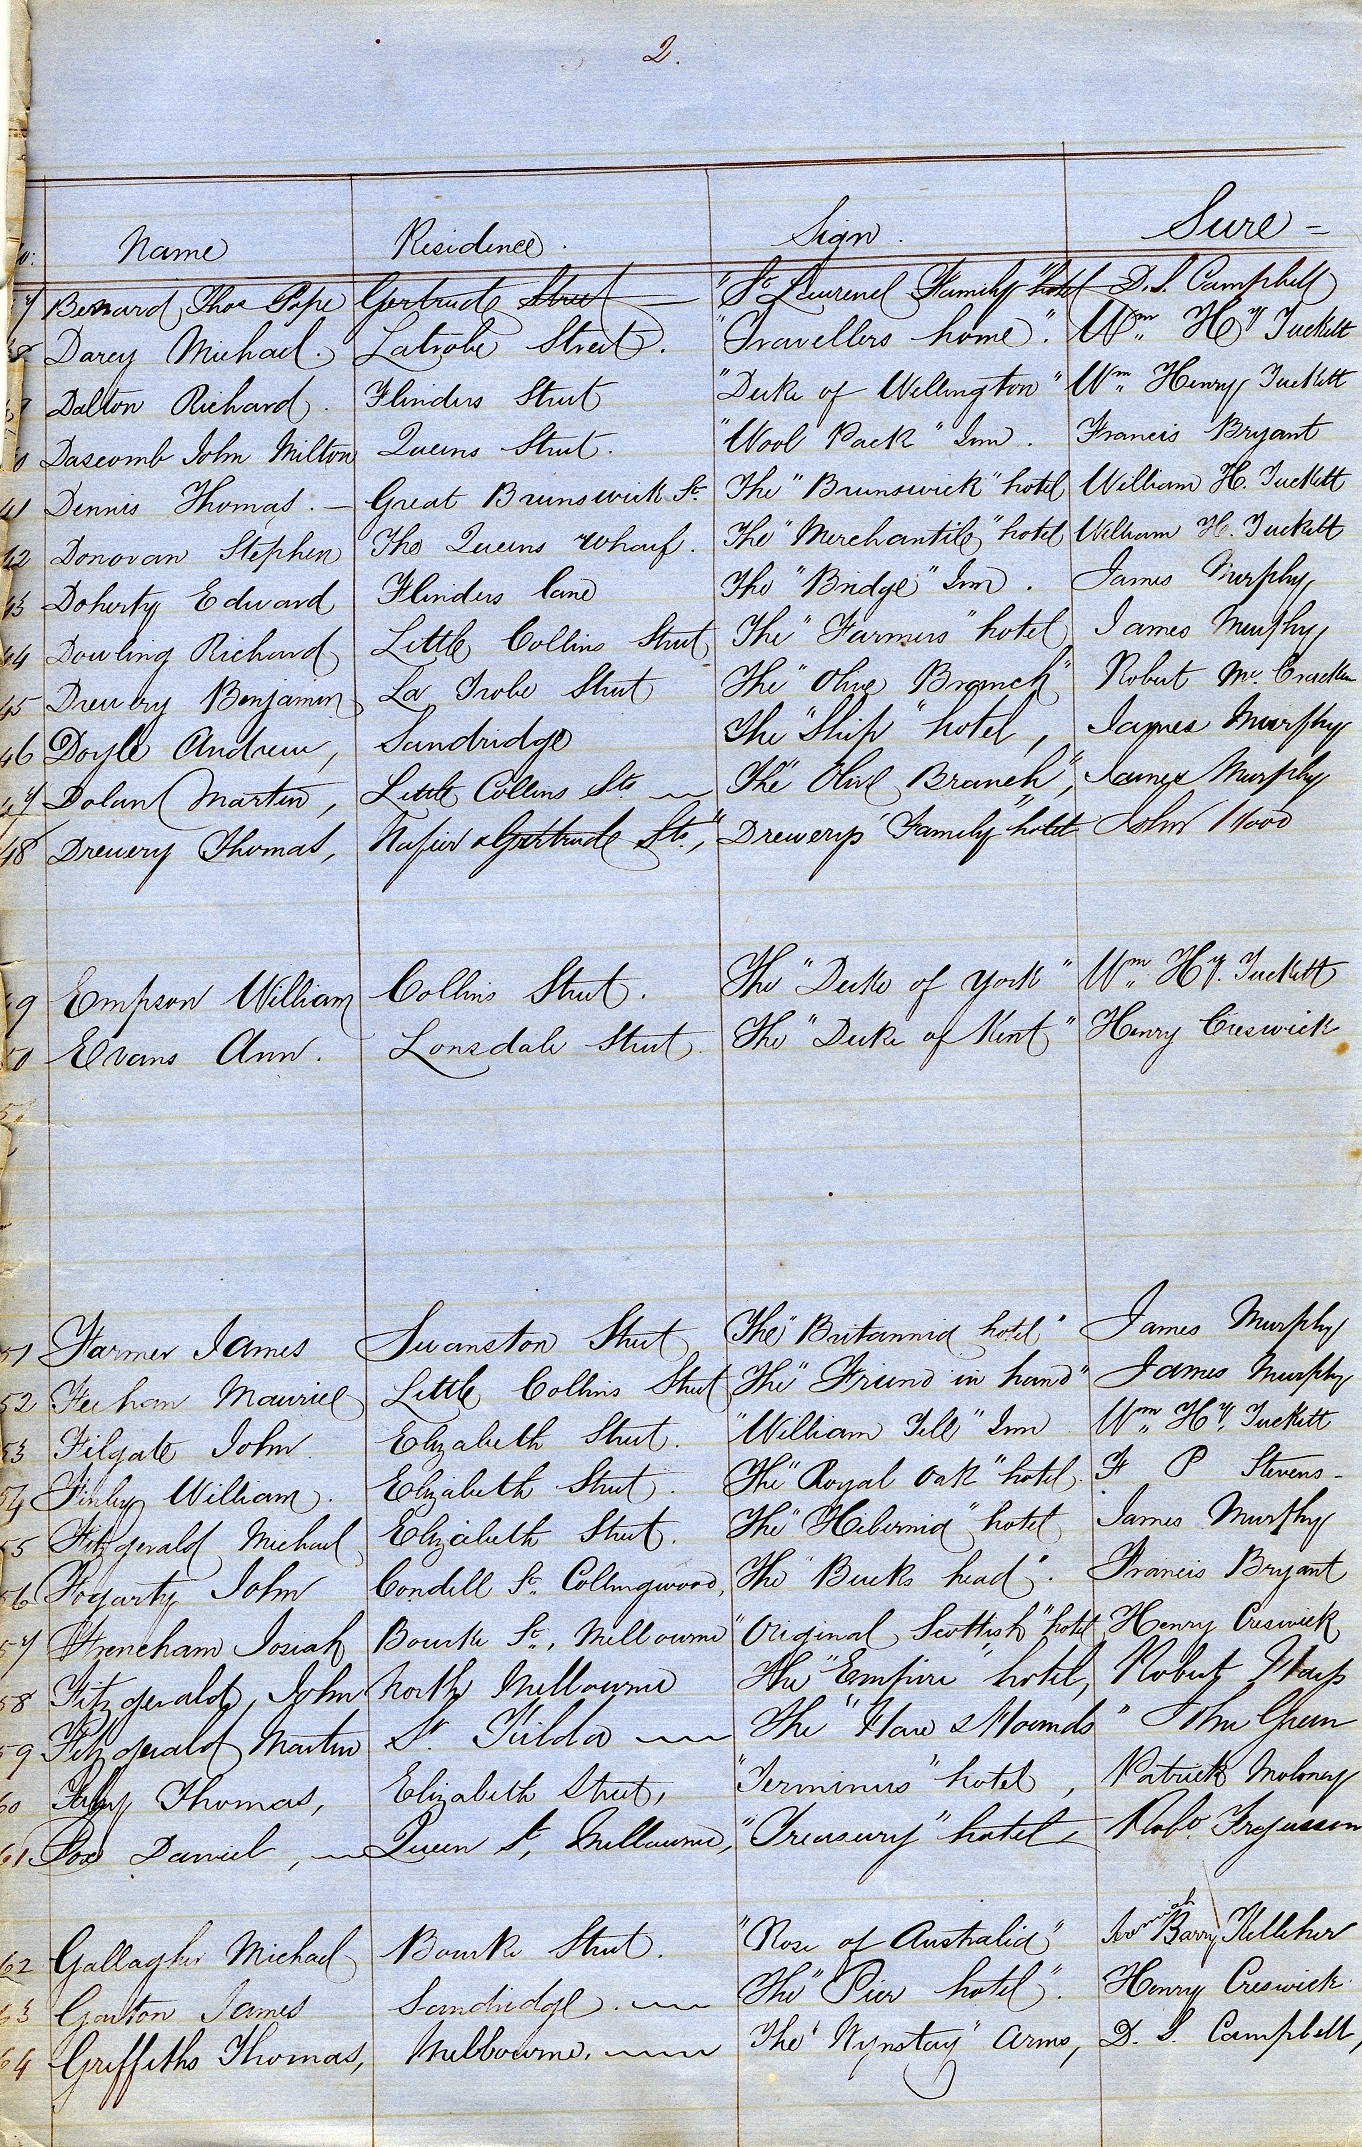 2.
Name Residence. Sign. Sure -
Bernard Thos Pope Gertrude Street "St Laurence Family" hotel D.S. Campbell
Darcy Michael. Latrobe Street. "Travellers home". Wm Hy Tuckett
Dalton Richard. Flinders Street "Duke of Wellington" Wm Henry Tuckett
Dascomb John Milton Queens Street. "Wool Pack" Inn. Francis Bryant
41 Dennis Thomas. - Great Brunswick St. The "Brunswick" hotel William H. Tuckett
42 Donovan Stephen The Queens Wharf. The "Merchantile" hotel William H. Tuckett
43 Doherty Edward Flinders lane The "Bridge" Inn. James Murphy
44 Dowling Richard Little Collins Street The "Farmers" hotel James Murphy
45 Drewery Benjamin La Trobe Street The "Olive Branch" Robert McCracken
46 Doyle Andrew, Sandridge The "Ship" hotel, James Murphy
47 Dolan Martin, Little Collins St. The "Olive Branch", James Murphy
48 Drewery Thomas, Napier & Gertrude Sts., "Drewerys Family" hotel John Hood
49 Empson William Collins Street. The "Duke of York" Wm Hy. Tuckett
50 Evans Ann. Lonsdale Street. The "Duke of Kent" Henry Creswick
51
51 Farmer James Swanston Street The "Britannia hotel" James Murphy
52 Feehan Maurice Little Collins Street The "Friend in hand" James Murphy
53 Filgate John Elizabeth Street. "William Tell" Inn Wm Hy. Tuckett
54 Finlay William. Elizabeth Street. The "Royal Oak" hotel. F P Stevens -
55 Fitzgerald Michael Elizabeth Street. The "Hibernia" hotel James Murphy
56 Fogarty John Condell St. Collingwood, The "Bucks head". Francis Bryant
57 Frencham Josiah Bourke St., Melbourne "Original Scottish" hotel Henry Creswick
58 Fitzgerald, John North Melbourne The "Empire" hotel, Robert
59 Fitzgerald Martin St. Kilda The "Hare & Hounds" John Green
60 Thomas, Elizabeth Street, "Terminus" hotel, Patrick Moloney
61 Fox Daniel, Queen St, Melbourne, "Treasury" hotel, Robt. Fergusson
62 Gallagher Michael Bourke Street. "Rose of Australia" Barry Kelleher
63 Garton James Sandridge. The "Pier hotel". Henry Creswick
64 Griffiths Thomas, Melbourne. The "Wynstay" Arms, D. S. Campbell,